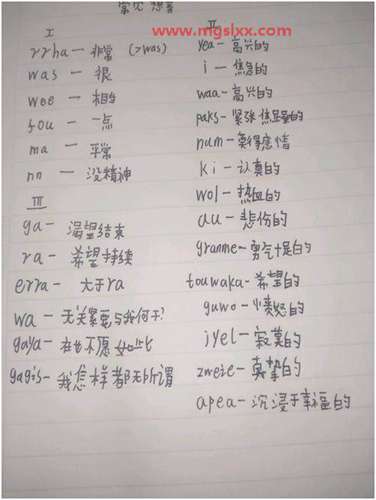 常见
www.mgslxx.com
I
rrha — 非常 (>was)
was — 很
wee — 相当
fou — 一点
ma — 平常
nn — 没精神
II
yea - 高兴的
i - 焦急的
waa - 高兴的
paks - 紧张焦虑的
num - 莫得感情
ki - 认真的
wol - 热血的
au - 悲伤的
granme - 勇气十足的
touwaka - 希望的
guwo - 愤怒的
jyel - 寂寞的
zweie - 真挚的
apea - 沉浸于幸福的
III
ga - 渴望结束
ra - 希望持续
erra - 大于ra
wa - 无关紧要与我何干?
gaya - 在也不愿如此
gagis - 我怎样都无所谓